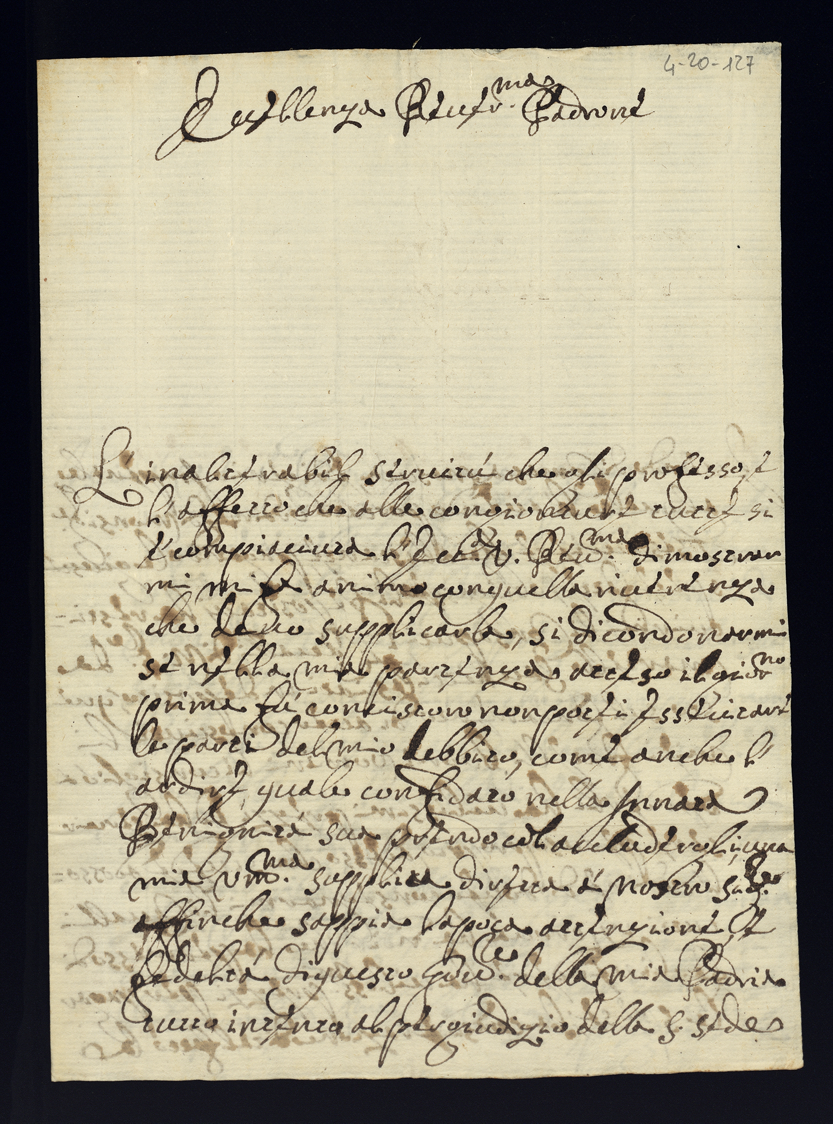 4-20-127
Eccellenza Reverr.ma Padrone
L'inalterabil servitù che gli professo, e
l'affetto che alle congionture tutte si
è compiaciuta l'Ecc. V. Rev.ma dimostrar
mi mi fa animo con quella riverenza
che devo supplicarla, si di condonarmi
se nella mia partenza atteso il giorno
prima fù concistoro non potei essercitare
le parti del mio debbito, come anche l'
ardire, quale confidato nella Innata
Benignità sua prendo col acludergli una
mia um.ma supplica diretta à nostro Sig.re
affinche sappia la poca attenzione, et
fedeltà di questo Gov.re della mia Padria
tutto intento al pregiudizio della S. Sede